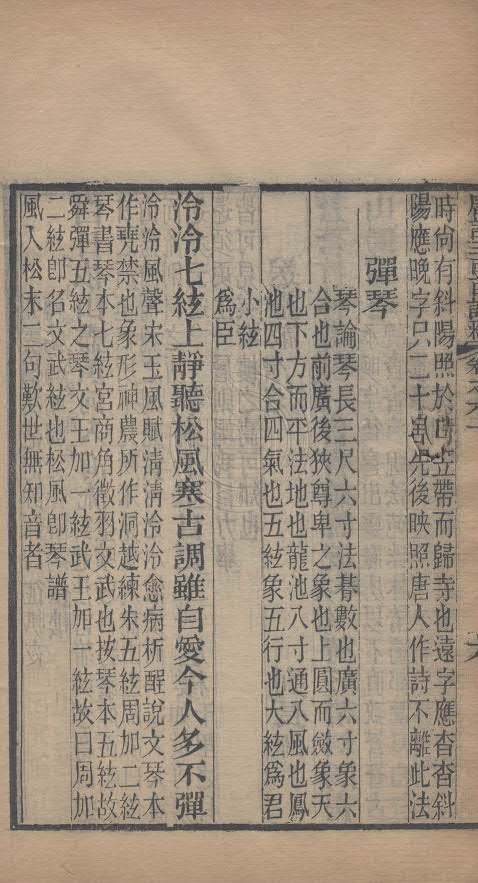 時尚有斜陽照於山立帶而歸寺也遠字應杳杳斜
陽應晚字只二十字先後映照唐人作詩不離此法
彈琴
琴論琴長三尺六寸法朞數也廣六寸象六
合也前廣後狹尊卑之象也上圓而斂象天
也下方而平法地也龍池八寸通八風也鳳
池四寸合四氣也五絃象五行也大絃爲君
小絃
爲臣
泠泠七絃上靜聽松風寒古調雖自愛今人多不彈
泠泠風聲宋玉風賦清清泠泠愈病析酲說文琴本
作珡禁也象形神農所作洞越練朱五絃周加二絃
琴書琴本七絃宮商角徵羽文武也按琴本五絃故
舜彈五絃之琴文王加一絃武王加一絃故曰周加
二絃卽名文武絃也松風卽琴譜
風入松末二句歎世無知音者